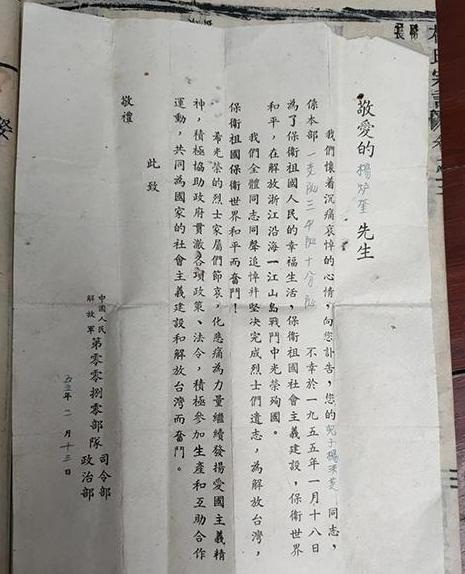 敬爱的楊炉奎先生
我們懷着沉痛哀悼的心情，向您訃告，您的兒子楊漢芝同志，
係本部一支队三中队十分队
不幸於一九五五年一月十八日
為了保衛祖國人民的幸福生活，保衛祖國社會主義建設，保衛世界
和平，在解放浙江沿海一江山島戰鬥中光榮殉國。
我們全體同志同聲追悼并堅决完成烈士們遺志，為解放台灣，
保衛祖國保衛世界和平而奮鬥！
希光荣的烈士家屬們節哀，化悲痛為力量繼續發揚愛國主義精
神，積極協助政府貫澈各項政策、法令，積極參加生產和互助合作
運動，共同為國家的社會主義建設和解放台灣而奮鬥。
此致
敬禮
中國人民解放軍第零零捌零部隊司令部政治部
五五年二月十三日